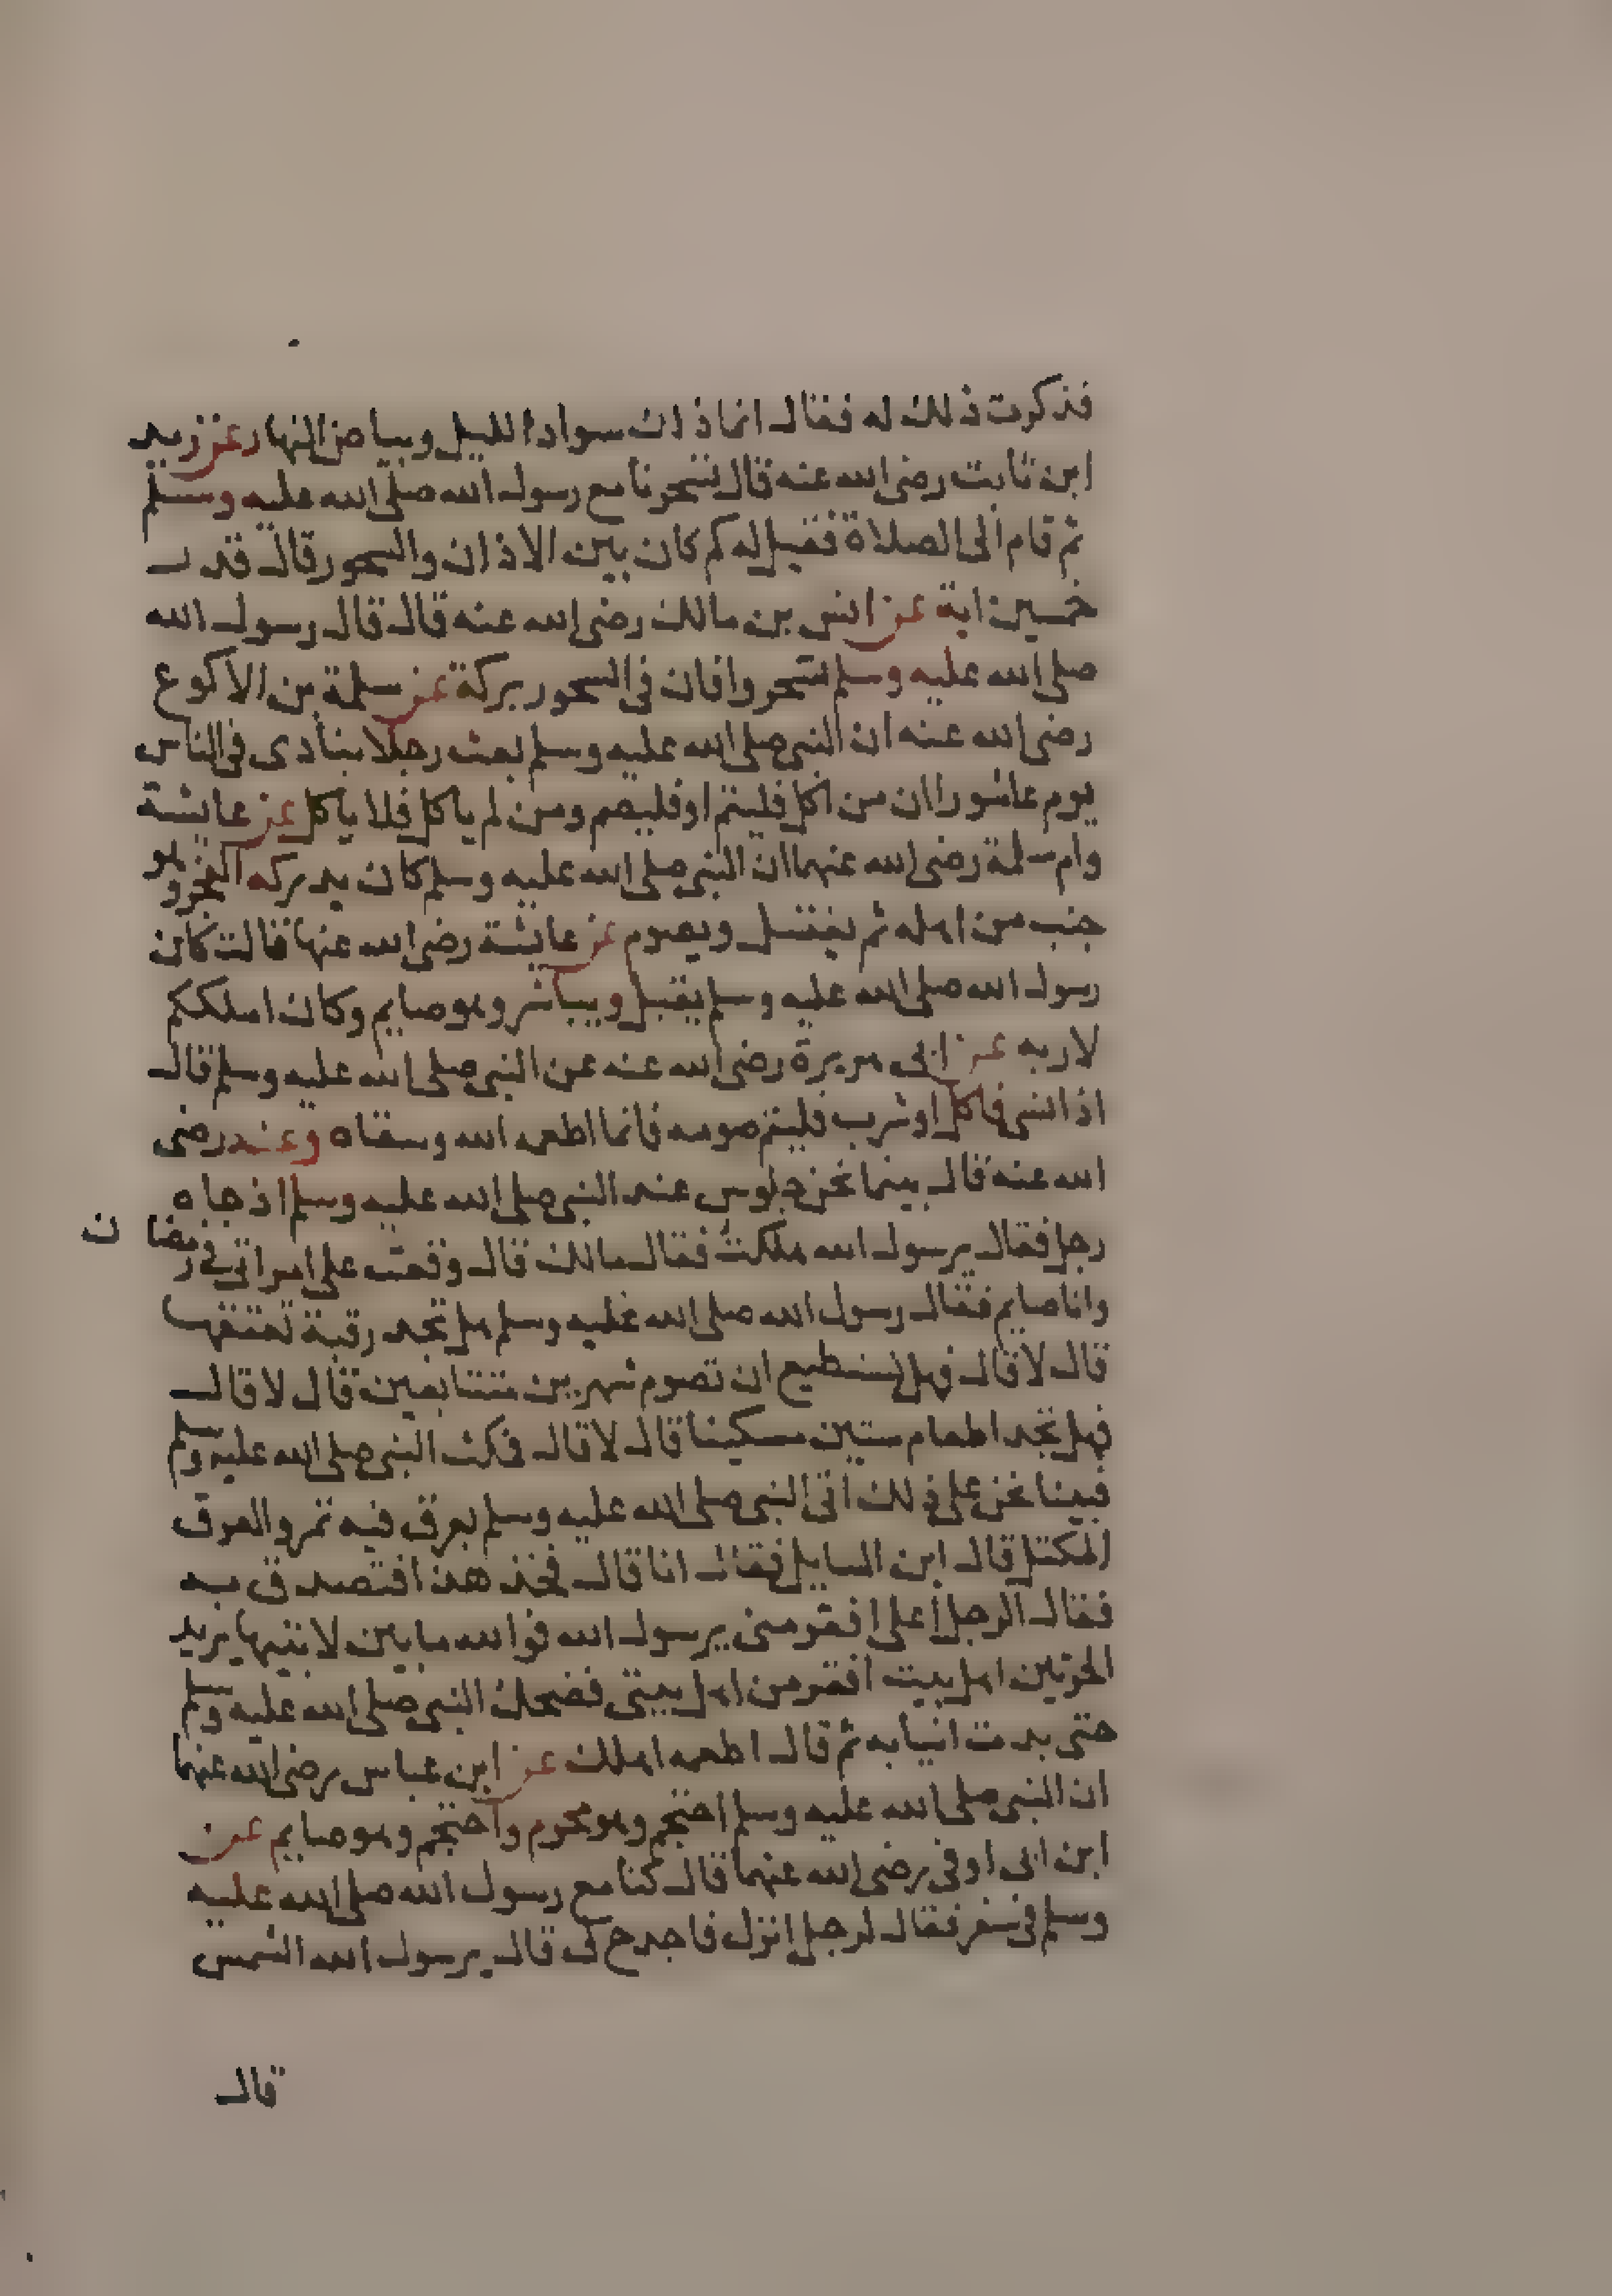 فذكرت ذلك له فقال انما ذاك سواد الليل وبياض النهار عن زيد
ابن ثابت رضي الله عنه قال تسحرنا مع رسول الله صلى الله عليه وسلم
ثم قام الى الصلاة فقيل له كم كان بين الاذان والسحور قال قدر
خمسين اية عن انس بن مالك رضي الله عنه قال قال رسول الله
صلى الله عليه وسلم تسحروا فان في السحور بركة عن سلمة بن الاكوع
رضي الله عنه ان النبي صلى الله عليه وسلم بعث رجلا ينادى في الناس
يوم عاشورا ان من اكل فليتم او فليصم ومن لم ياكل فلا ياكل عن عايشة
وام سلمة رضي الله عنهما ان النبي صلى الله عليه وسلم كان يدركه الفجر وهو
جنب من اهله ثم يغتسل ويصوم عن عايشة رضي الله عنها قالت كان
رسول الله صلى الله عليه وسلم يقبل ويباشر وهو صايم وكان املككم
لاربه عن ابى هريرة رضي الله عنه عن النبي صلى الله عليه وسلم قال
اذا نسي فاكل او شرب فليتم صومه فانما اطعمه الله وسقاه وعنه رضي
الله عنه قال بينما نحن جلوس عند النبي صلى الله عليه وسلم اذ جاه
رجل فقال يرسول الله هلكت فقال مالك قال وقعت على امراتي في رمضان
وانا صايم فقال رسول الله صلى الله عليه وسلم هل تجد رقبة تعتقها
قال لا قال فهل تستطيع ان تصوم شهرين متتابعين قال لا قال
فهل تجد اطعام ستين مسكينا قال لا قال فمكث النبي صلى الله عليه وسلم
فبينا نحن على ذلك اتى النبي صلى الله عليه وسلم بعرق فيه تمر والعرق
المكتل قال اين السايل فقال انا قال فخذ هذا فتصدق به
فقال الرجل اعلى افقر منى يرسول الله فوالله ما بين لابتيها يريد
الحرتين اهل بيت افقر من اهل بيتى فضحك النبي صلى الله عليه وسلم
حتى بدت انيابه ثم قال اطعمه اهلك عن ابن عباس رضي الله عنهما
ان النبي صلى الله عليه وسلم احتجم وهو محرم واحتجم وهو صايم عن
ابن ابى اوفى رضي الله عنهما قال كنا مع رسول الله صلى الله عليه
وسلم في سفر فقال لرجل انزل فاجدح لى قال يرسول الله الشمس
قال